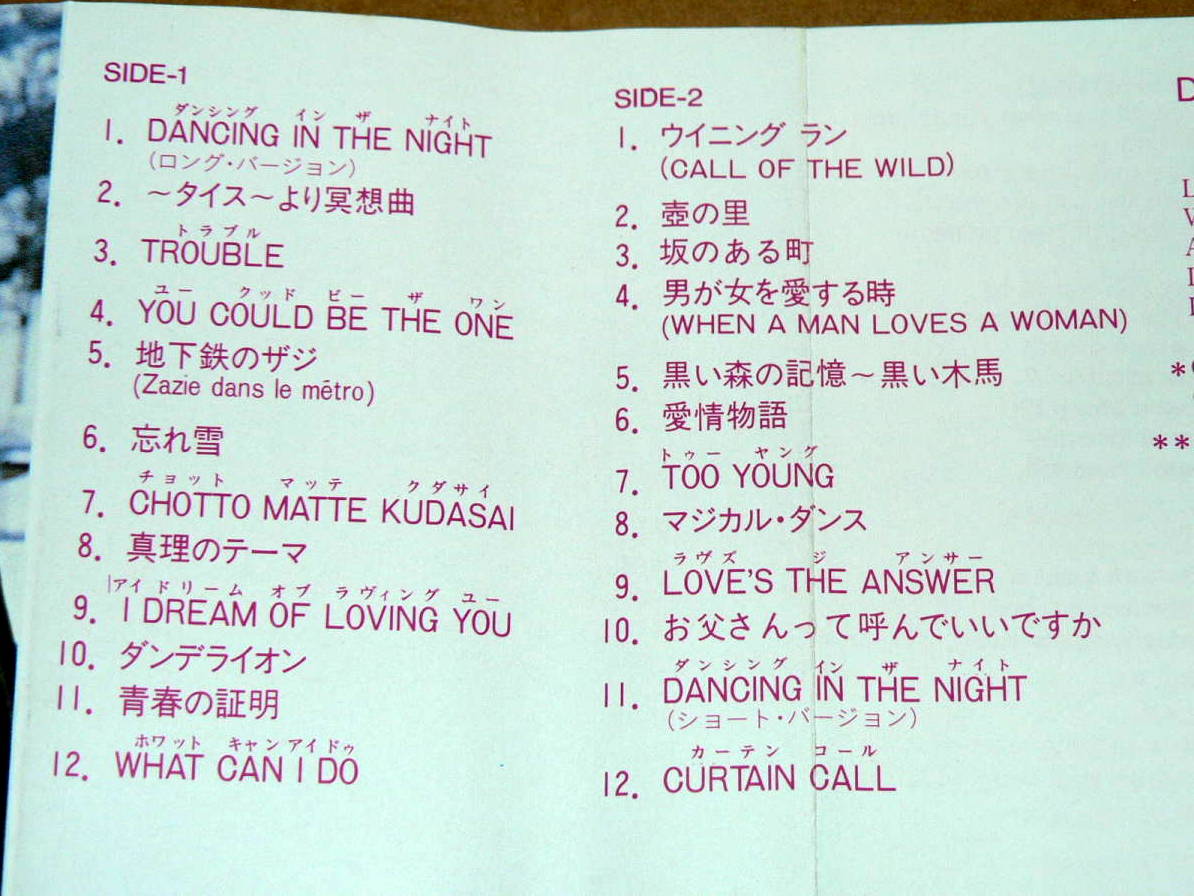 SIDE-1
ダンシング イン ザ ナイト
1. DANCING IN THE NIGHT
(ロング・バージョン)
2. ～タイス～より冥想曲
トラブル
3. TROUBLE
ユー クッド ビー ザ ワン
4. YOU COULD BE THE ONE
5. 地下鉄のザジ
(Zazie dans le métro)
6. 忘れ雪
チョット マッテ クダサイ
7. CHOTTO MATTE KUDASAI
8. 真理のテーマ
アイ ドリーム オブ ラヴィング ユー
9. I DREAM OF LOVING YOU
10. ダンデライオン
11. 青春の証明
ホワット キャン アイ ドゥ
12. WHAT CAN I DO
SIDE-2
1. ウイニング ラン
(CALL OF THE WILD)
2. 壺の里
3. 坂のある町
4. 男が女を愛する時
(WHEN A MAN LOVES A WOMAN)
5. 黒い森の記憶～黒い木馬
6. 愛情物語
トゥー ヤング
7. TOO YOUNG
8. マジカル・ダンス
ラヴズ ジ アンサー
9. LOVE'S THE ANSWER
10. お父さんって呼んでいいですか
ダンシング イン ザ ナイト
11. DANCING IN THE NIGHT
(ショート・バージョン)
カーテン コール
12. CURTAIN CALL
*
**